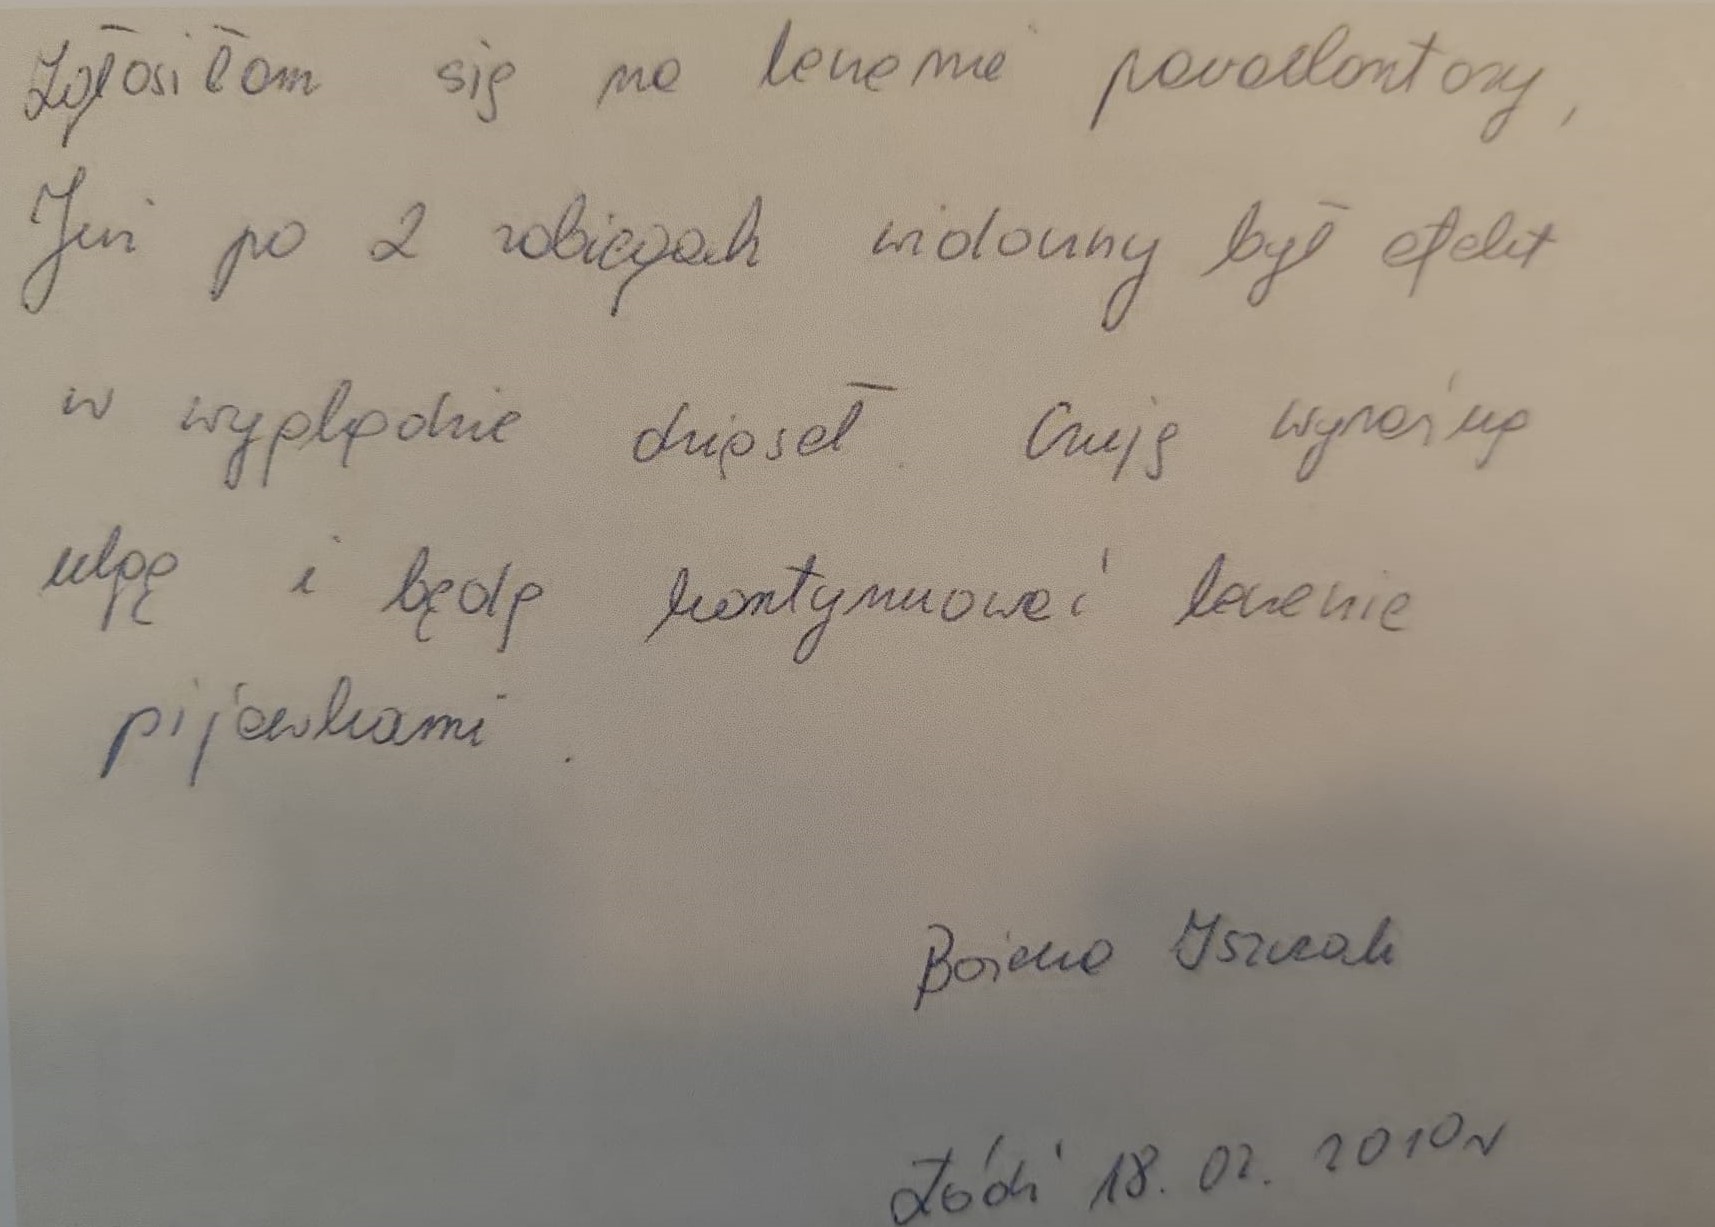 Zgłosiłam się na leczenie paradontozy,
Już po 2 zabiegach widoczny był efekt
w wyglądzie dziąseł. Czuję wyraźną
ulgę i będę kontynuować leczenie
pijawkami.
Bożena Iszczak
Łódź 18.02.2010r